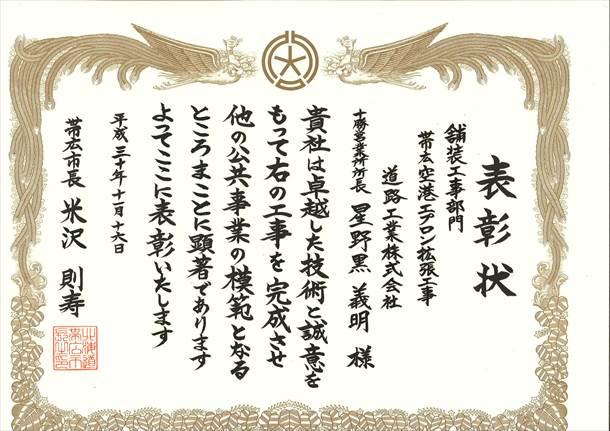 表彰状
舗装工事部門
帯広空港エプロン拡張工事
道路工業株式会社
十勝営業所所長 星野黒 義明 様
貴社は卓越した技術と誠意を
もって右の工事を完成させ
他の公共事業の模範となる
ところまことに顕著であります
よってここに表彰いたします
平成三十年十一月十六日
帯広市長 米沢 則寿
北海道
帯広市
長之印